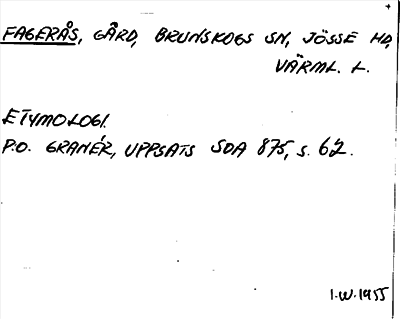 FAGERÅS, GÅRD, BRUNSKOGS SN, JÖSSE HD,
VÄRML. L.
ETYMOLOGI.
P.O. GRANÉR, UPPSATS SDA 875, S. 62.
I.W. 1955